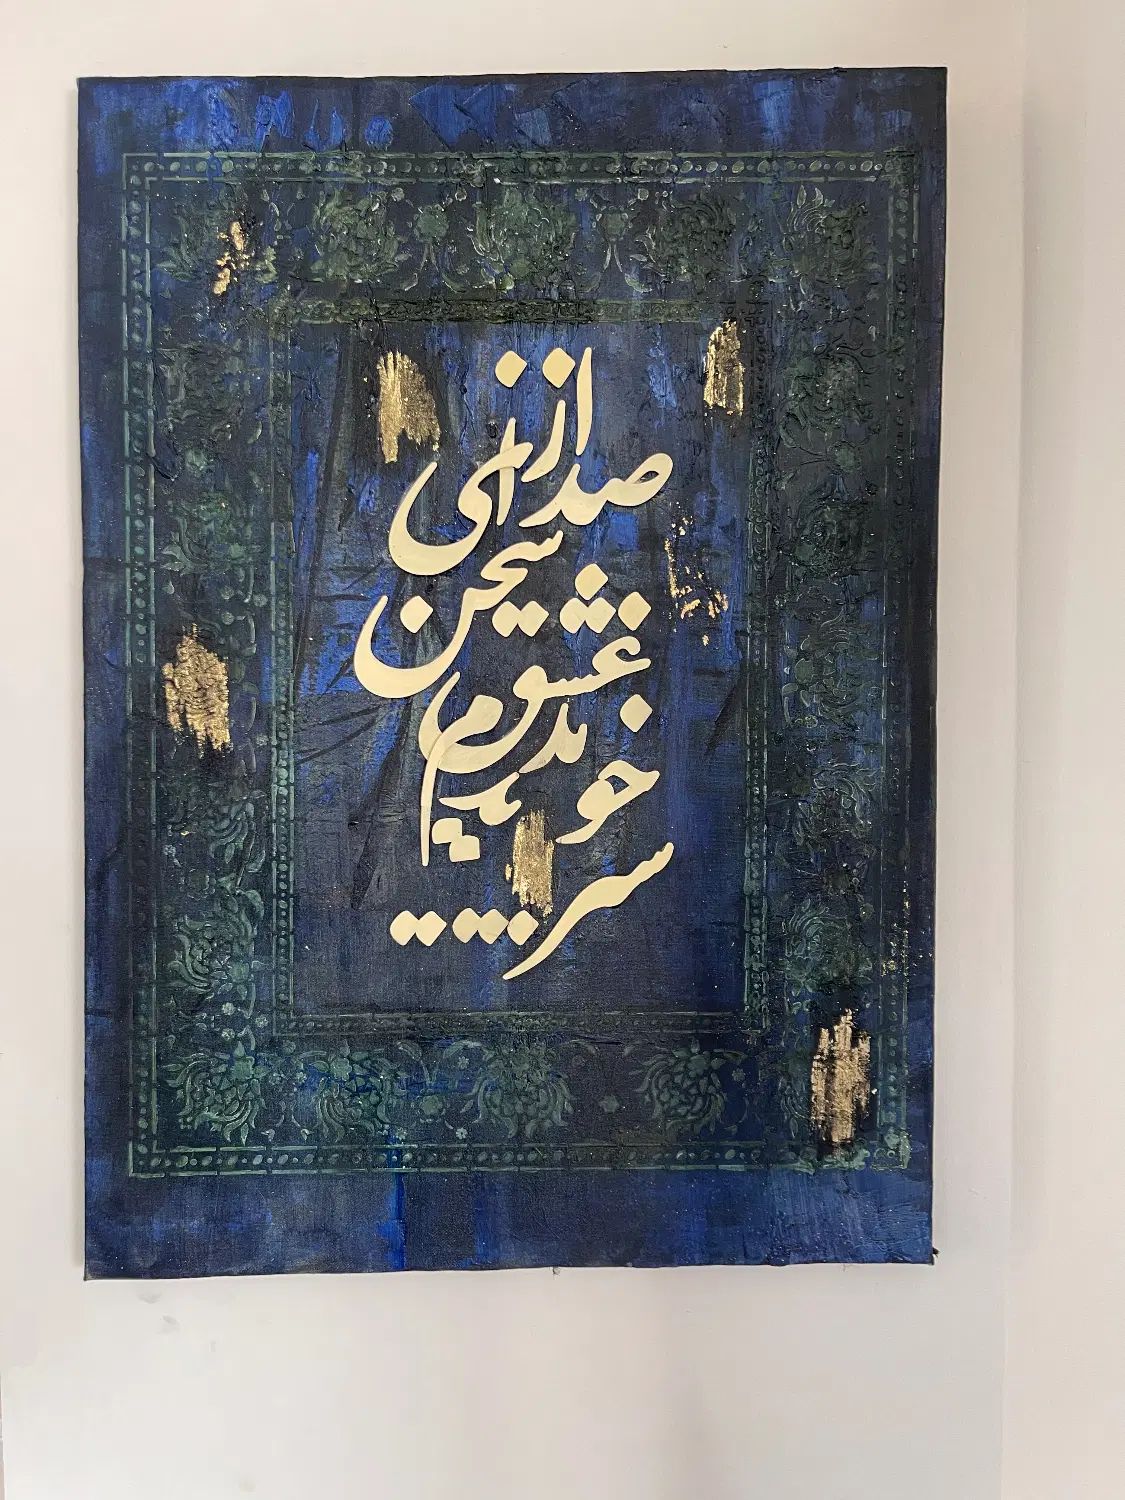 از
صدای
سخن
عشق
ندیدم
خوشتر